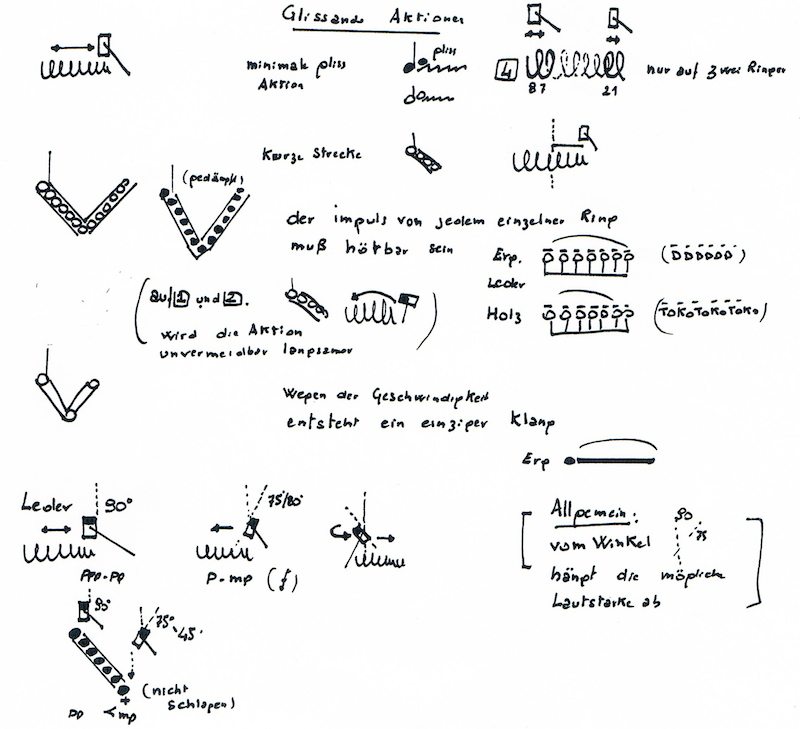 Glissando Aktionen
minimale gliss
Aktion
gliss
4
87
21
nur auf zwei Ringer
kurze Strecke
(gedämpft)
der impuls von jedem einzelner Ring
muß hörbar sein
Erg.
(DDDDDD)
Leder
Holz
(ToKoToKoToKo)
(auf 1 und 2.
wird die Aktion
unvermeidbar langsamer)
Wegen der Geschwindigkeit
entsteht ein einziger Klang
Erg
Leder
90°
ppp-pp
75°/80°
p-mp (f)
[Allgemein:
90
75
vom Winkel
hängt die mögliche
Lautstarke ab]
90°
75°
45°
(nicht
schlagen)
pp < mp